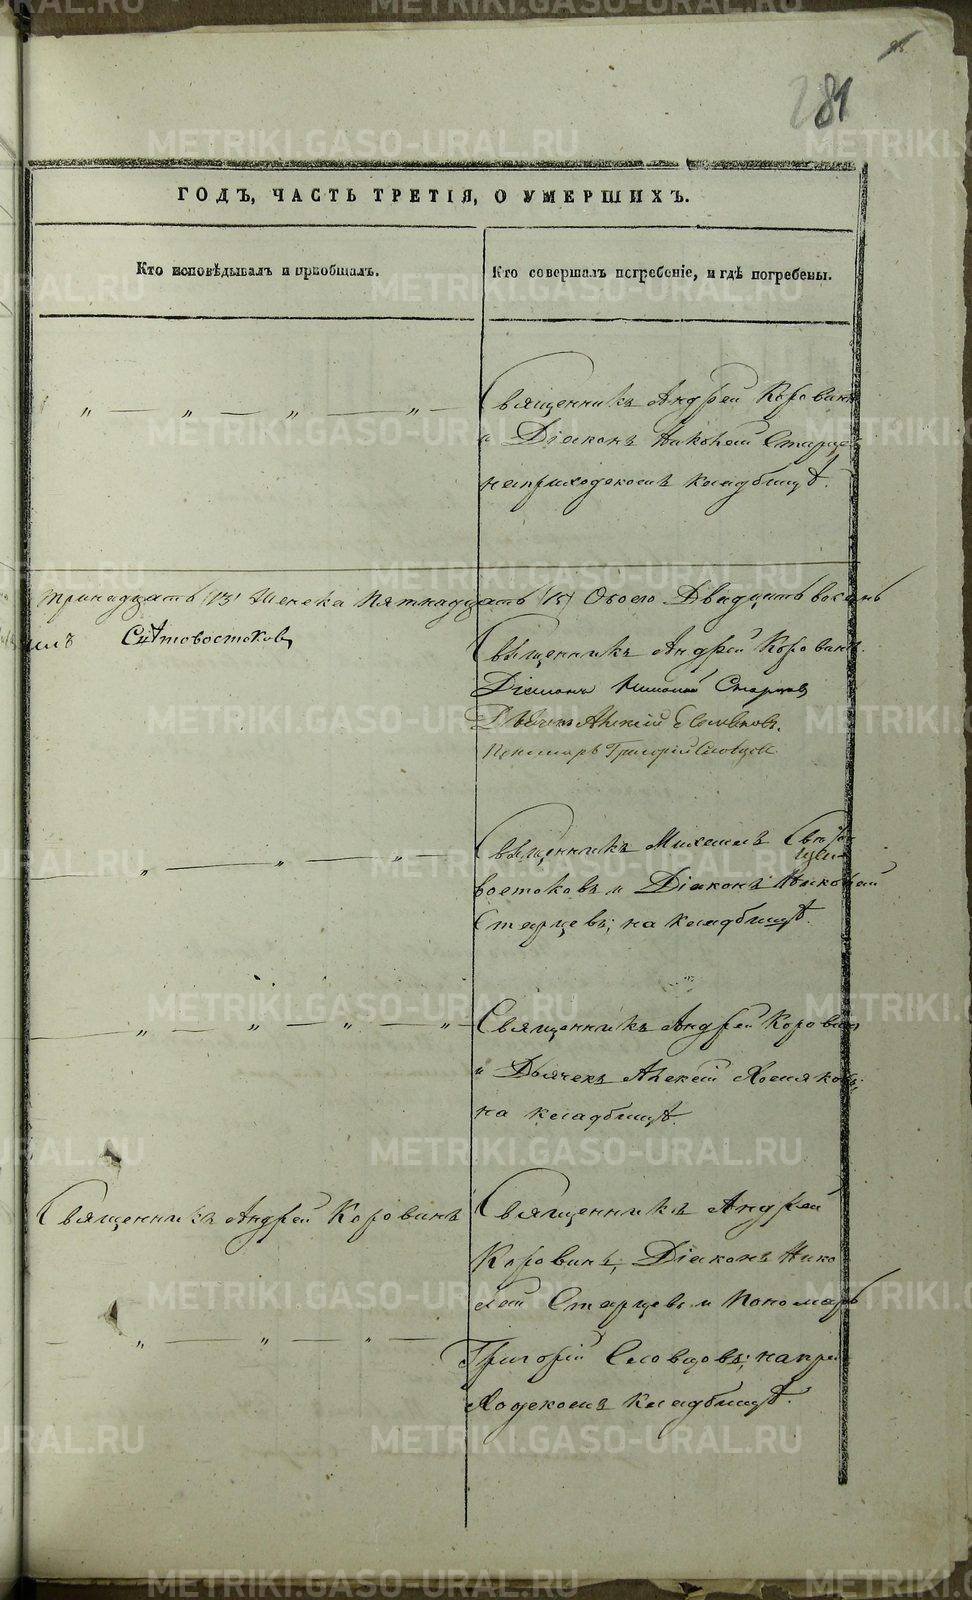 281
ГОДЪ, ЧАСТЬ ТРЕТІЯ, О УМЕРШИХЪ.
Кто исповѣдывалъ и пріобщалъ.
Кто совершалъ погребеніе, и гдѣ погребены.
Священникъ Андрей Коровинъ
и Діаконъ Николай Старцевъ
наприходскомъ кладбищѣ.
тринадцать (13) Женска Пятнадцать (15) Обоего Двадцать восемь
Святовостоковъ
Священникъ Андрей Коровинъ.
Діаконъ Николай Старцевъ
Дьячекъ Алексій
Пономарь Григорій Словцовъ
Священникъ Михаилъ Свято
востоковъ и Діаконъ Николай
Старцевъ; на кладбищѣ.
Священникъ Андрей Коровинъ
и Дьячекъ Алексій Хомяковъ;
на кладбищѣ.
Священникъ Андрей Коровинъ
Священникъ Андрей
Коровинъ, Діаконъ Нико
лай Старцевъ и Пономарь
Григорій Словцовъ; на при
ходскомъ кладбищѣ.
METRIKI.GASO-URAL.RU